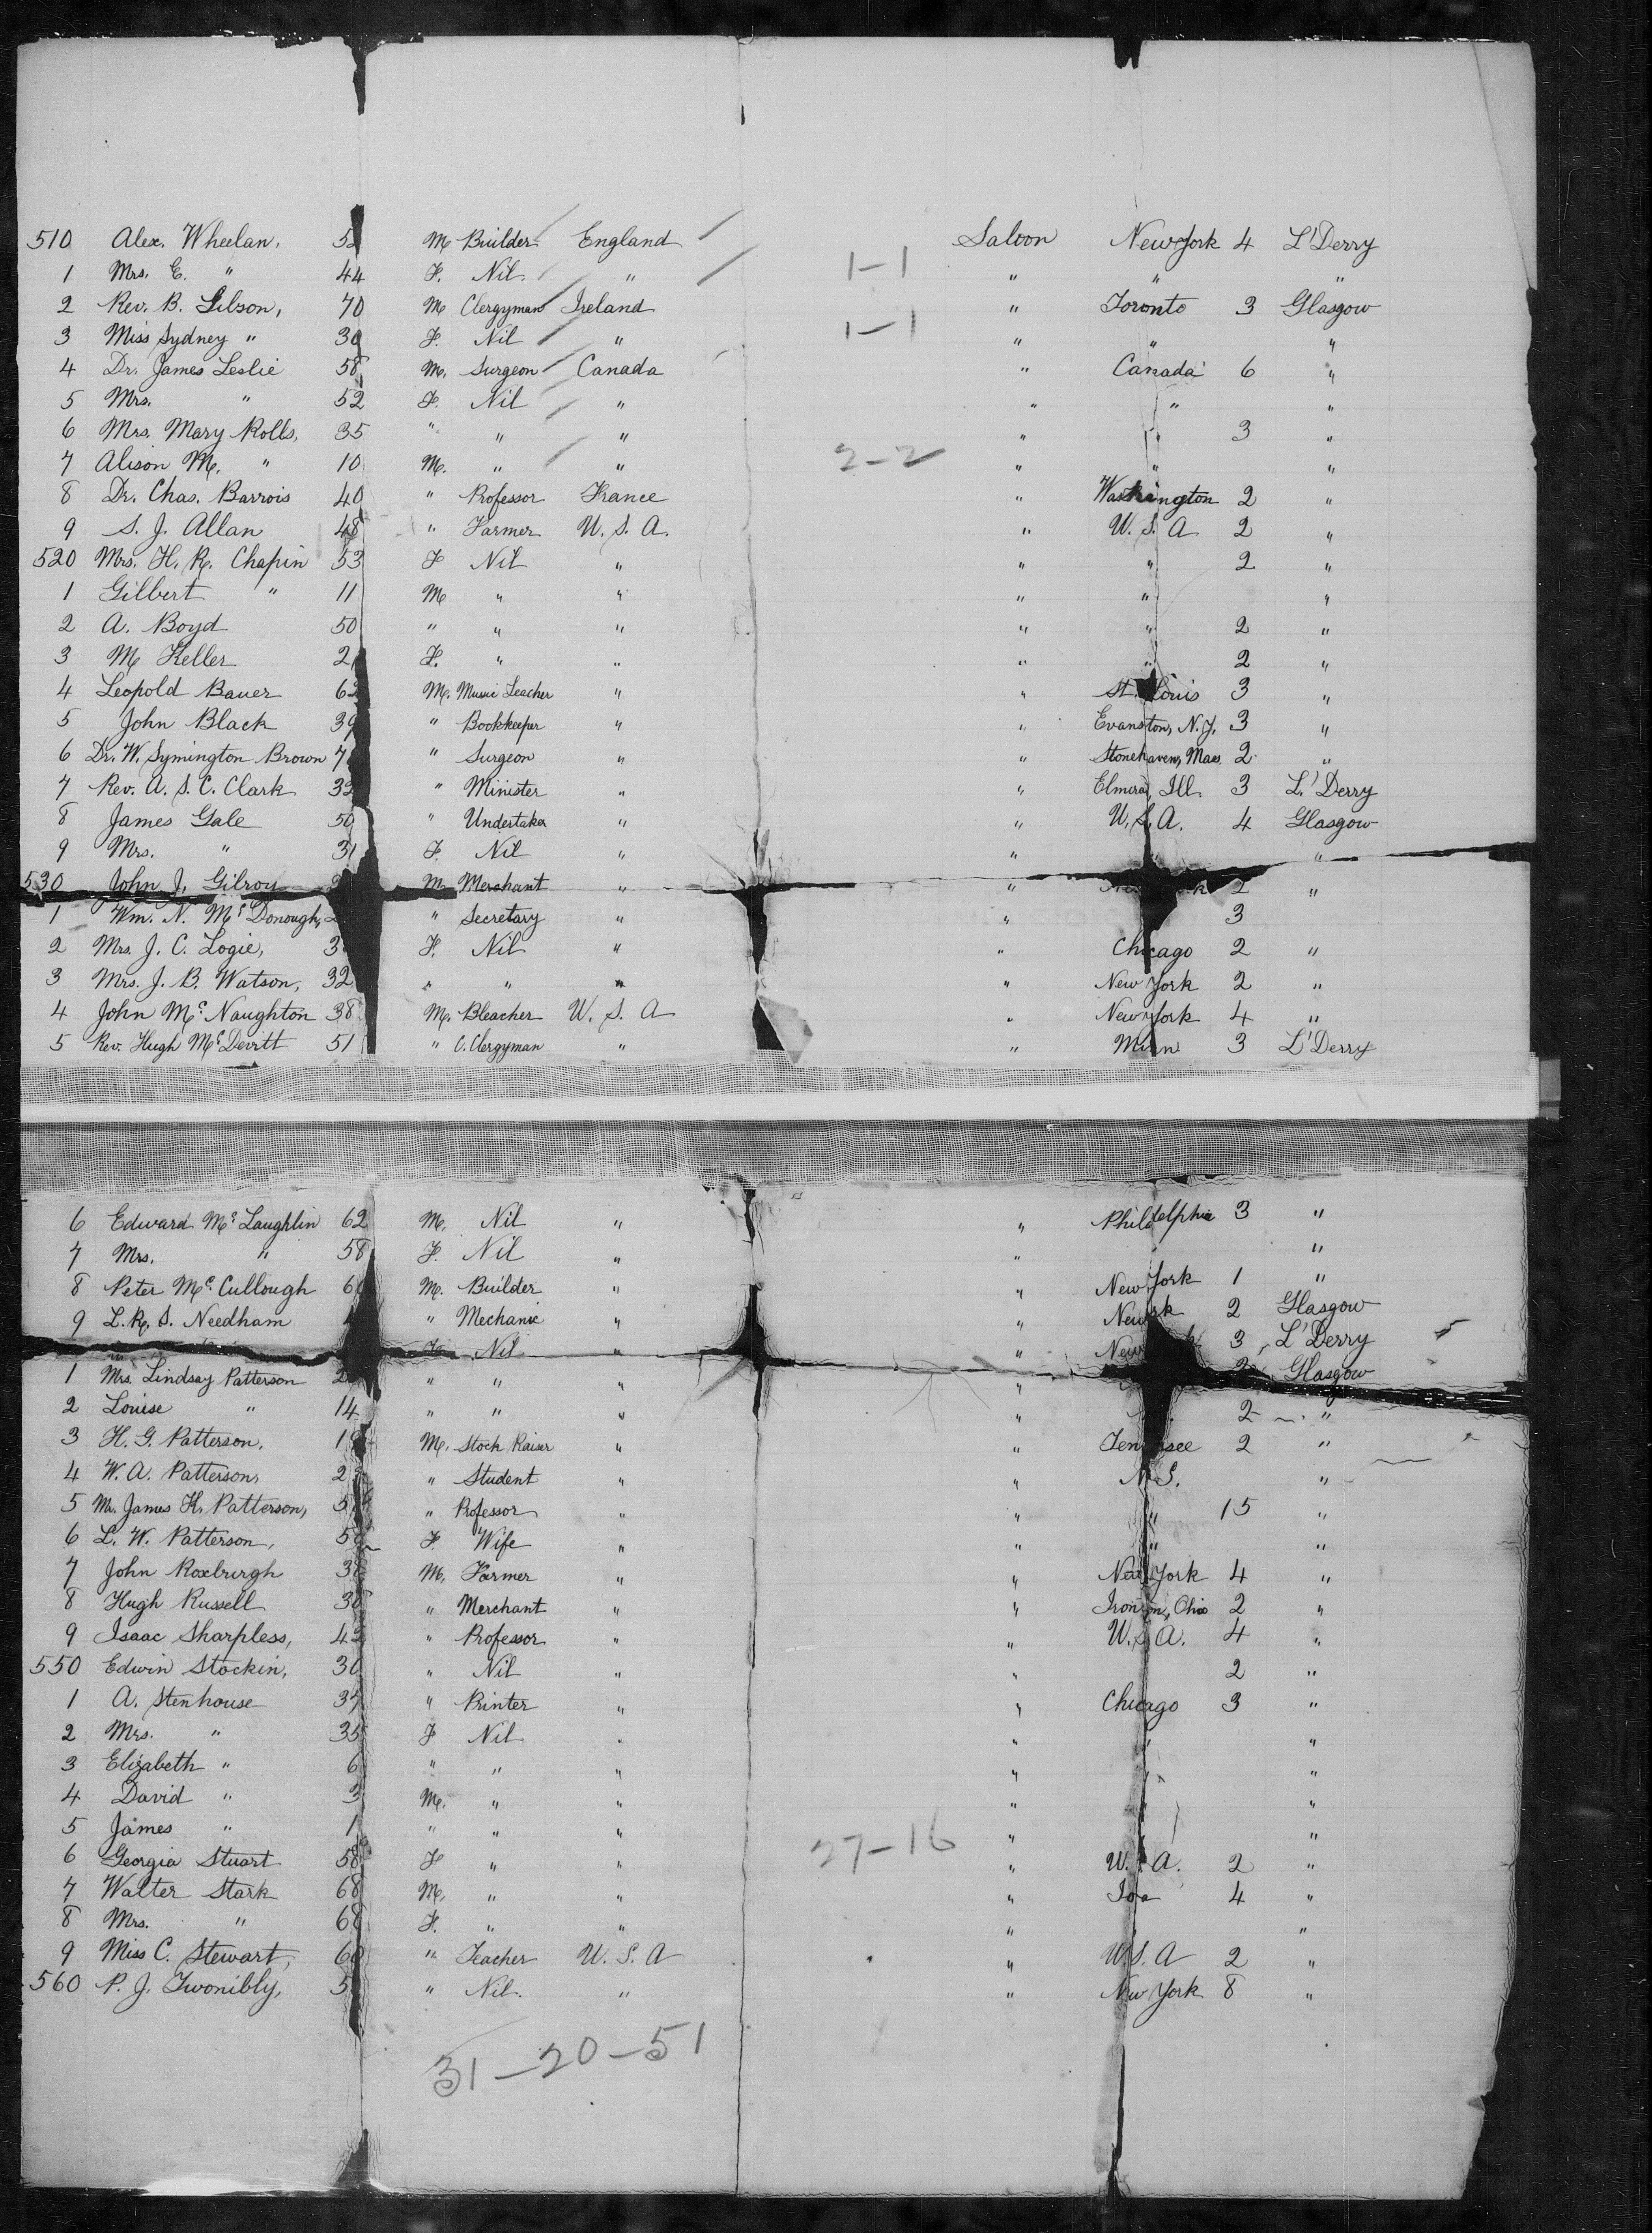 510 Alex. Wheelan, 52 M Builder England Saloon New York 4 L'Derry
1 Mrs. E. " 44 F. Nil " 1-1 " " "
2 Rev. B. Gibson, 70 M Clergyman Ireland " Toronto 3 Glasgow
3 Miss Sydney " 30 F. Nil " 1-1 " " "
4 Dr. James Leslie 58 M. Surgeon Canada " Canada 6 "
5 Mrs. " 52 F. Nil " " " "
6 Mrs. Mary Rolls, 35 " " " " " 3 "
7 Alison M. " 10 M. " " 2-2 " " "
8 Dr. Chas. Barrois 40 " Professor France " Washington 2 "
9 S. J. Allan 48 " Farmer U. S. A. " U. S. A 2 "
520 Mrs. H. R. Chapin 53 F Nil " " " 2 "
1 Gilbert " 11 M " " " " "
2 A. Boyd 50 " " " " " 2 "
3 M Keller 2 F. " " " " 2 "
4 Leopold Bauer 62 M. Music Teacher " " St. Louis 3 "
5 John Black 39 " Bookkeeper " " Evanston, N.J. 3 "
6 Dr. W. Symington Brown 7 " Surgeon " " Stonehaven, Mass 2 "
7 Rev. A. S. C. Clark 32 " Minister " " Elmira, Ill. 3 L'Derry
8 James Gale 50 " Undertaker " " U. S. A. 4 Glasgow
9 Mrs. " 31 F. Nil " " "
530 John J. Gilroy M. Merchant " " 2 "
1 Wm. N. McDonough, 2 " Secretary " " 3
2 Mrs. J. C. Logie, 3 F. Nil " " Chicago 2 "
3 Mrs. J. B. Watson, 32 " " " " New York 2 "
4 John McNaughton 38 M. Bleacher U. S. A " New York 4 "
5 Rev. Hugh McDevitt 51 " C. Clergyman " " Minn 3 L'Derry
6 Edward McLaughlin 62 M. Nil " " Philadelphia 3 "
7 Mrs. " 58 F. Nil " " "
8 Peter McCullough 60 M. Builder " " New York 1 "
9 L. R. S. Needham " Mechanic " " New rk 2 Glasgow
F. Nil " " New 3 L'Derry
1 Mrs. Lindsay Patterson 2 " " " " 2 Glasgow
2 Louise " 14 " " " " 2 "
3 H. G. Patterson, 1 M. Stock Raiser " " Ten see 2 "
4 W. A. Patterson, 2 " Student " " "
5 Mr. James K. Patterson, 5 " Professor " " " 15 "
6 L. W. Patterson, 5 F. Wife " " " "
7 John Roxburgh 38 M. Farmer " " New York 4 "
8 Hugh Russell 38 " Merchant " " Ironton, Ohio 2 "
9 Isaac Sharpless, 42 " Professor " " U. S. A. 4 "
550 Edwin Stockin, 30 " Nil " " 2 "
1 A. Stenhouse 37 " Printer " " Chicago 3 "
2 Mrs. " 35 F Nil " " " "
3 Elizabeth " 6 " " " " " "
4 David " 3 M. " " " " "
5 James " 1 " " " " "
6 Georgia Stuart 58 F " " 27-16 " U. S. A. 2 "
7 Walter Stark 68 M. " " " Ioa 4 "
8 Mrs. " 68 F. " " " "
9 Miss C. Stewart, 60 " Teacher U. S. A " U. S. A 2 "
560 P. J. Twonibly, 5 " Nil. " " New York 8 "
31-20-51